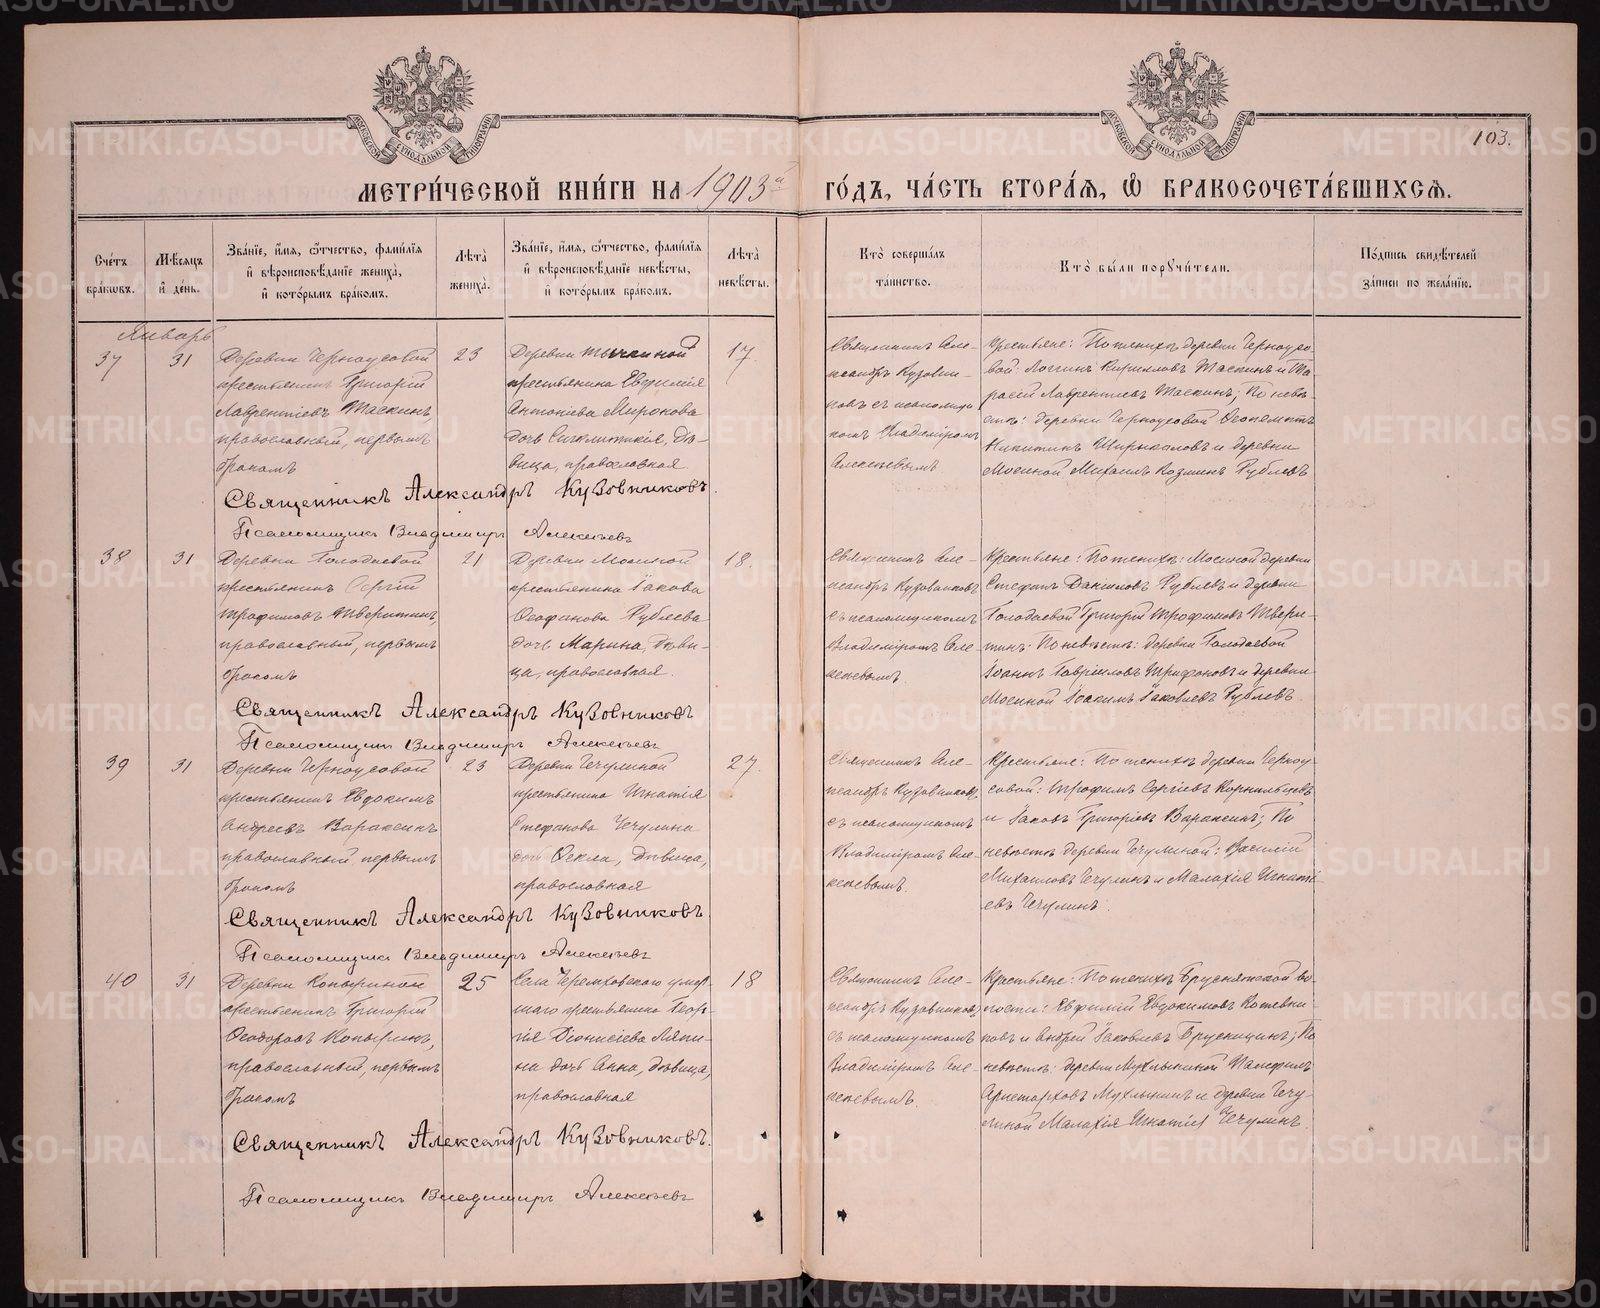 103.
МЕТРИ́ЧЕСКОЙ КНИ́ГИ НА 1903й ГО́ДЪ, ЧА́СТЬ ВТОРА́Ѧ, Ѿ БРАКОСОЧЕТА́ВШИХСѦ.
Сче́тъ бра́кѡвъ.
Мѣ́сяцъ и҆ де́нь.
Зва́нїе, и҆́мѧ, ѻ҆́тчество, фами́лїѧ и҆ вѣроисповѣ́данїе жениха̀, и҆ кото́рымъ бра́комъ.
Лѣ́та жениха̀.
Зва́нїе, и҆́мѧ, ѻ҆́тчество, фами́лїѧ и҆ вѣроисповѣ́данїе невѣ́сты, и҆ кото́рымъ бра́комъ.
Лѣ́та невѣ́сты.
Кто̀ соверша́лъ та́инство.
Кто̀ бы́ли поручи́тели.
По́дпись свидѣ́телей за́писи по жела́нїю.
Январь
37
31
Деревни Черноусовой
крестьянинъ Григорій
Лаврентіевъ Таскинъ,
православный, первымъ
бракомъ
23
Деревни
крестьянина Евфимія
Антоніева Миронова
дочь Синклитикія, дѣ-
вица, православная
17
Священникъ Але-
ксандръ Кузовни-
ковъ съ псаломщи-
комъ Владиміромъ
Алексѣевымъ
Крестьяне: По женихѣ деревни Черноусо-
вой: Логгинъ Кирилловъ Таскинъ и Та-
расій Лаврентіевъ Таскинъ; По невѣ-
стѣ: деревни Черноусовой Ѳеоктистъ
Никитинъ и деревни
Мосиной Михаилъ Козминъ Рублевъ
Священникъ Александръ Кузовниковъ.
Псаломщикъ Владимиръ Алексѣевъ
38
31
Деревни Голодаевой
крестьянинъ Сергій
Трофимовъ Тверитинъ,
православный, первымъ
бракомъ
21
Деревни Мосиной
крестьянина Іакова
Ѳеофанова Рублева
дочь Марина, дѣви-
ца, православная.
18.
Священникъ Але-
ксандръ Кузовниковъ
съ псаломщикомъ
Владиміромъ Але-
ксѣевымъ.
Крестьяне: По женихѣ: Мосиной деревни
Стефанъ Даниловъ Рублевъ и деревни
Голодаевой Григорій Трофимовъ Твери-
тинъ: По невѣстѣ: деревни Голодаевой
Іоаннъ Гавріиловъ Трифоновъ и деревни
Мосиной Іоакимъ Іаковлевъ Рублевъ.
Священникъ Александръ Кузовниковъ
Псаломщикъ Владимиръ Алексѣевъ
39
31
Деревни Черноусовой
крестьянинъ Евдокимъ
Андреевъ Вараксинъ
православный, первымъ
бракомъ
23
Деревни Чечулиной
крестьянина Игнатія
Стефанова Чечулина
дочь Ѳекла, дѣвица,
православная
27.
Священникъ Але-
ксандръ Кузовниковъ
съ псаломщикомъ
Владиміромъ Але-
ксѣевымъ.
Крестьяне: По женихѣ деревни Черноу-
совой: Трофимъ Сергіевъ Корнильцевъ
и Іаковъ Григоріевъ Вараксинъ; По
невѣстѣ деревни Чечулиной: Василій
Михаиловъ Чечулинъ и Малахія Игнаті-
евъ Чечулинъ.
Священникъ Александръ Кузовниковъ.
Псаломщикъ Владимиръ Алексѣевъ
40
31
Деревни Копыриной
крестьянинъ Григорій
Ѳеодоровъ Копыринъ,
православный, первымъ
бракомъ
25
Села Черемховскаго умер-
шаго крестьянина Геор-
гія Діонисіева Ляпи-
на дочь Анна, дѣвица,
православная
18
Священникъ Але-
ксандръ Кузовниковъ
съ псаломщикомъ
Владиміромъ Але-
ксѣевымъ.
Крестьяне: По женихѣ Бруснятской во-
лости: Евфимій Евдокимовъ Кожевни-
ковъ и Андрей Іаковлевъ Брусницинъ; По
невѣстѣ: деревни Мухлыниной Памфилъ
Аристарховъ Мухлынинъ и деревни Чечу-
линой Малахія Игнатіевъ Чечулинъ.
Священникъ Александръ Кузовниковъ.
Псаломщикъ Владимиръ Алексѣевъ
METRIKI.GASO-URAL.RU